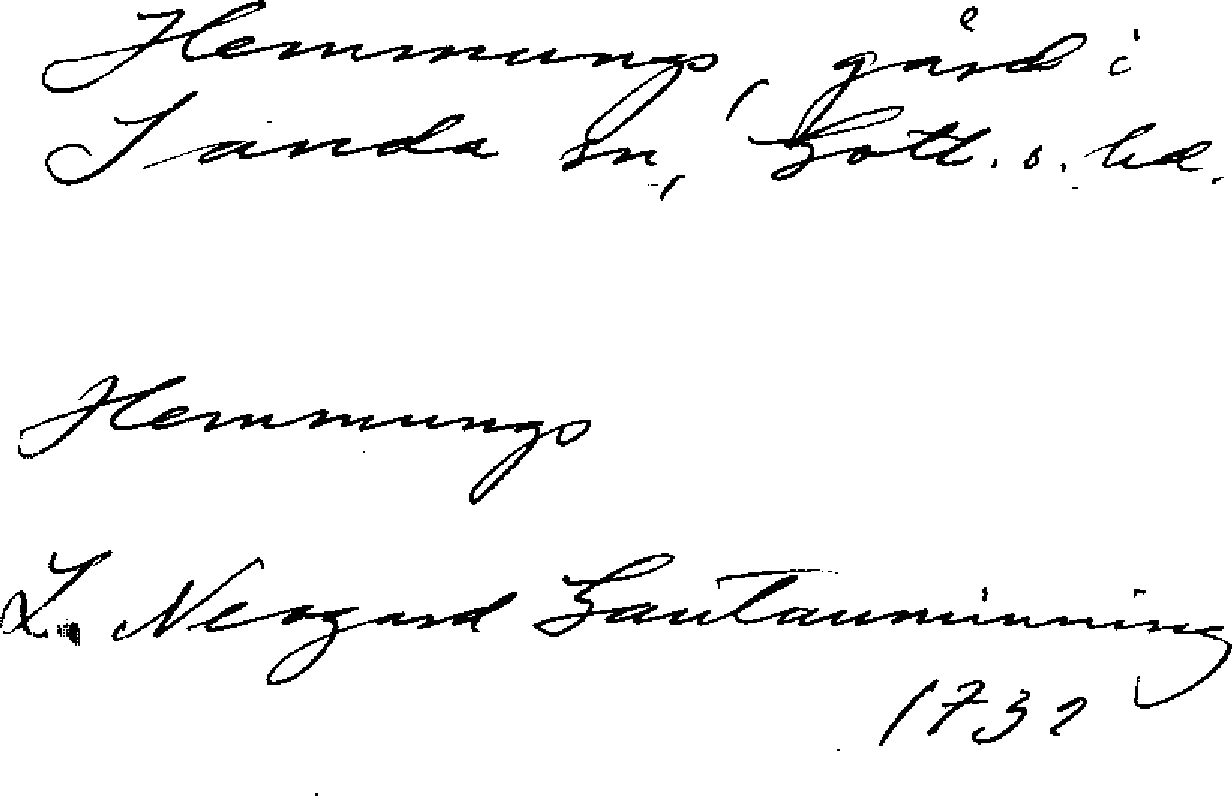 Hemmungs, gård i
Sanda sn, Gotl. s. hd.
Hemmungs
L. Neogard Gautauminning
1732